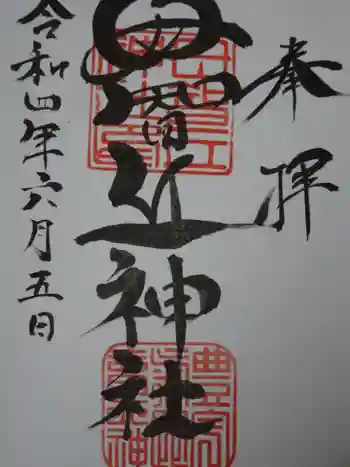 奉拝
母智丘神社
令和四年六月五日